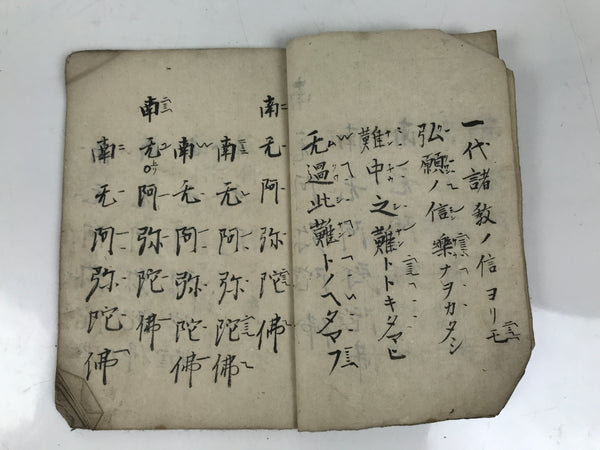 一代諸教ノ信ヨリモ
弘願ノ信樂ナヲカタシ
難中之難トトキタマヒ
无過此難トノヘタマフ
南无阿弥陀佛
南无阿弥陀佛
南无阿弥陀佛
南无阿弥陀佛
南无阿弥陀佛